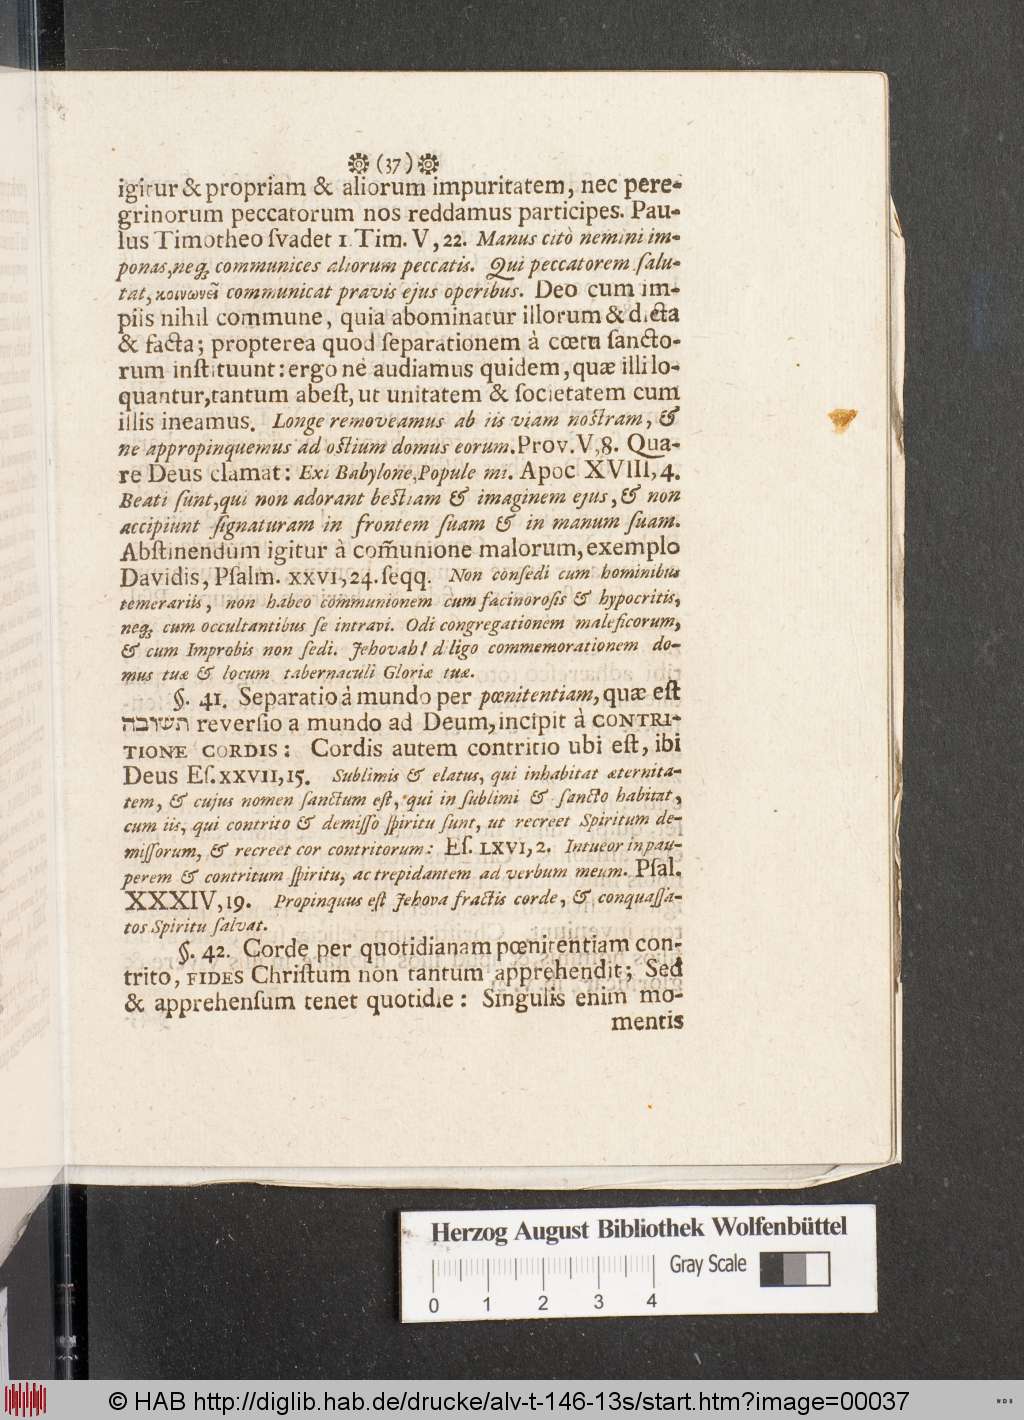 (37)
igitur & propriam & aliorum impuritatem, nec pere-
grinorum peccatorum nos reddamus participes. Pau-
lus Timotheo ſvadet 1 Tim. V, 22. Manus citò nemini im-
ponas, neq; communices aliorum peccatis. Qui peccatorem ſalu-
tat, κοινωνεῖ communicat pravis ejus operibus. Deo cum im-
piis nihil commune, quia abominatur illorum & dicta
& facta; propterea quod ſeparationem à cœtu ſancto-
rum inſtituunt: ergo nè audiamus quidem, quæ illi lo-
quantur, tantum abeſt, ut unitatem & ſocietatem cum
illis ineamus. Longe removeamus ab iis viam noſtram, &
ne appropinquemus ad oſtium domus eorum. Prov. V, 8. Qua-
re Deus clamat: Exi Babylone, Popule mi. Apoc XVIII, 4.
Beati ſunt, qui non adorant beſtiam & imaginem ejus, & non
accipiunt ſignaturam in frontem ſuam & in manum ſuam.
Abſtinendum igitur à com̃unione malorum, exemplo
Davidis, Pſalm. XXVI, 24. ſeqq. Non conſedi cum hominibus
temerariis, non habeo communionem cum facinoroſis & hypocritis,
neq; cum occultantibus ſe intravi. Odi congregationem maleficorum,
& cum Improbis non ſedi. Jehovah! diligo commemorationem do-
mus tuæ & locum tabernaculi Gloriæ tuæ.
§. 41. Separatio à mundo per pœnitentiam, quæ eſt
תשובה reverſio a mundo ad Deum, incipit à CONTRI-
TIONE CORDIS: Cordis autem contritio ubi eſt, ibi
Deus Eſ. XXVII, 15. Sublimis & elatus, qui inhabitat æternita-
tem, & cujus nomen ſanctum eſt, qui in ſublimi & ſancto habitat,
cum iis, qui contrito & demiſſo ſpiritu ſunt, ut recreet Spiritum de-
miſſorum, & recreet cor contritorum: Eſ. LXVI, 2. Intueor in pau-
perem & contritum ſpiritu, ac trepidantem ad verbum meum. Pſal.
XXXIV, 19. Propinquus eſt Jehova fractis corde, & conquaſſa-
tos Spiritu ſalvat.
§. 42. Corde per quotidianam pœnitentiam con-
trito, FIDES Chriſtum non tantum apprehendit; Sed
& apprehenſum tenet quotidie: Singulis enim mo-
mentis
Herzog August Bibliothek Wolfenbüttel
Gray Scale
0 1 2 3 4
© HAB http://diglib.hab.de/drucke/alv-t-146-13s/start.htm?image=00037